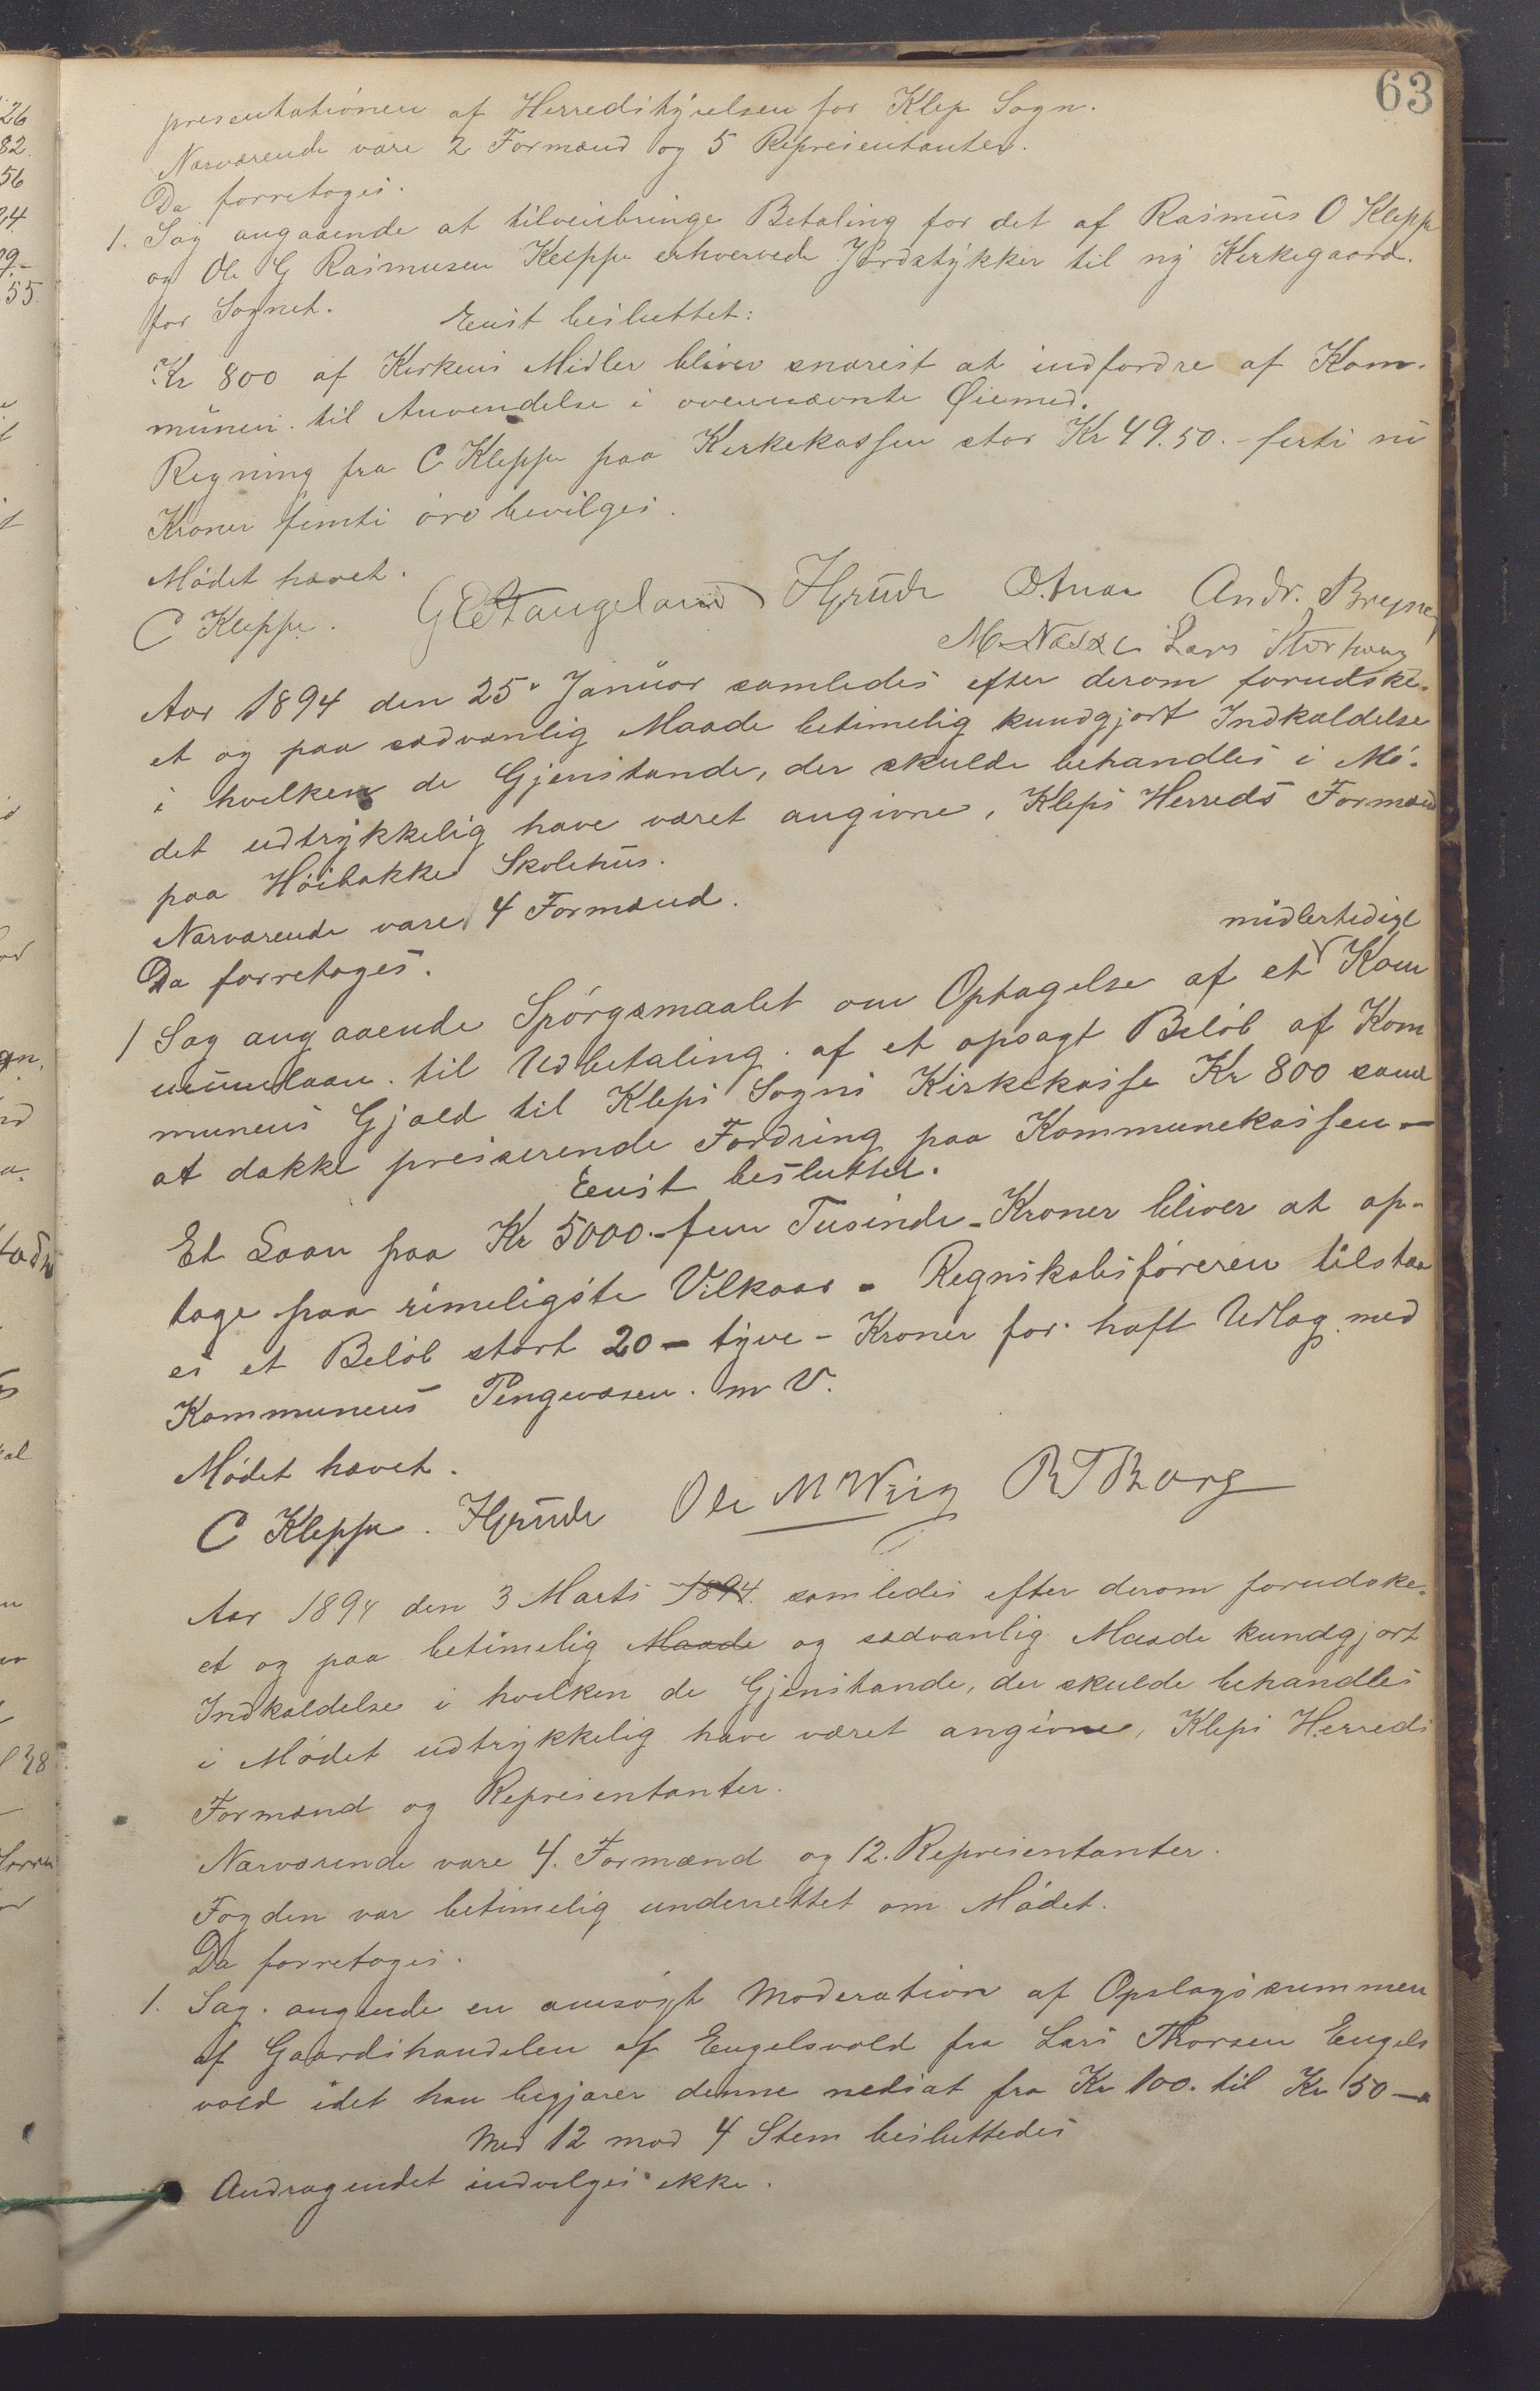 63
presentationen af Herredstyrelsen for Klep Sogn.
Nærværende vare 2 Formænd og 5 Representanter.
Da forretoges.
1. Sag angaaende at tilveiebringe Betaling for det af Rasmus O Klepp
og Ole G Rasmusen Kleppe erhvervede Jordstykker til ny Kirkegaard.
for Sognet. Enst besluttet:
Kr 800 af Kirkens Midler bliver snarest at indfordre af Kom-
munen. til Anvendelse i ovennævnte Øiemed.
Regning fra C Kleppe paa Kirkekassen stor Kr 49.50.- firti ni
Kroner femti øre bevilges.
Mødet hævet.
C Kleppe. G E Stangeland HGrude O.Anda Andr. Bryne
M Næsse Lars Storhaug
Aar 1894 den 25. Januar samledes efter derom forudske-
et og paa sædvanlig Maade betimelig kundgjort Indkaldelse
i hvilken de Gjenstande, der skulde behandles i Mø-
det udtrykkelig have været angivne, Kleps Herreds Formænd
paa Høibakke Skolehus.
Nærværende vare 4 Formænd.
Da forretoges.
midlertidigt
1 Sag angaaende Spørgsmaalet om Optagelse af et Kom
munelaan. til Udbetaling. af et opsagt Beløb af Kom
munens Gjæld til Kleps Sogns Kirkekasse Kr 800 samt
at dække presserende Fordring paa Kommunekassen -
Enst besluttet.
Et Laan paa Kr 5000.- fem Tusinde - Kroner bliver at op-
tage paa rimeligste Vilkaar - Regnskabsføreren tilstaa
es et Beløb stort 20 - tyve - Kroner for haft Udlæg med
Kommunens Pengevæsen. m V.
Mødet hævet.
C Kleppe. HGrude Ole M Wiig R T Borg
Aar 1894 den 3 Marts 1894. samledes efter derom forudske-
et og paa betimelig Maade og sædvanlig Maade kundgjort
Indkaldelse i hvilken de Gjenstande, der skulde behandles
i Mødet udtrykkelig have været angivne, Kleps Herreds
Formænd og Representanter.
Nærværende vare 4. Formænd og 12. Representanter.
Fogden var betimelig underrettet om Mødet.
Da forretoges.
1. Sag. angende en ansøgt Moderation af Opslagssummen
af Gaardshandelen af Engelsvold fra Lars Thorsen Engels
vold idet han begjærer denne nedsat fra Kr 100. til Kr 50 -
Med 12 mod 4 Stem besluttedes
Andragendet indvilges ikke.